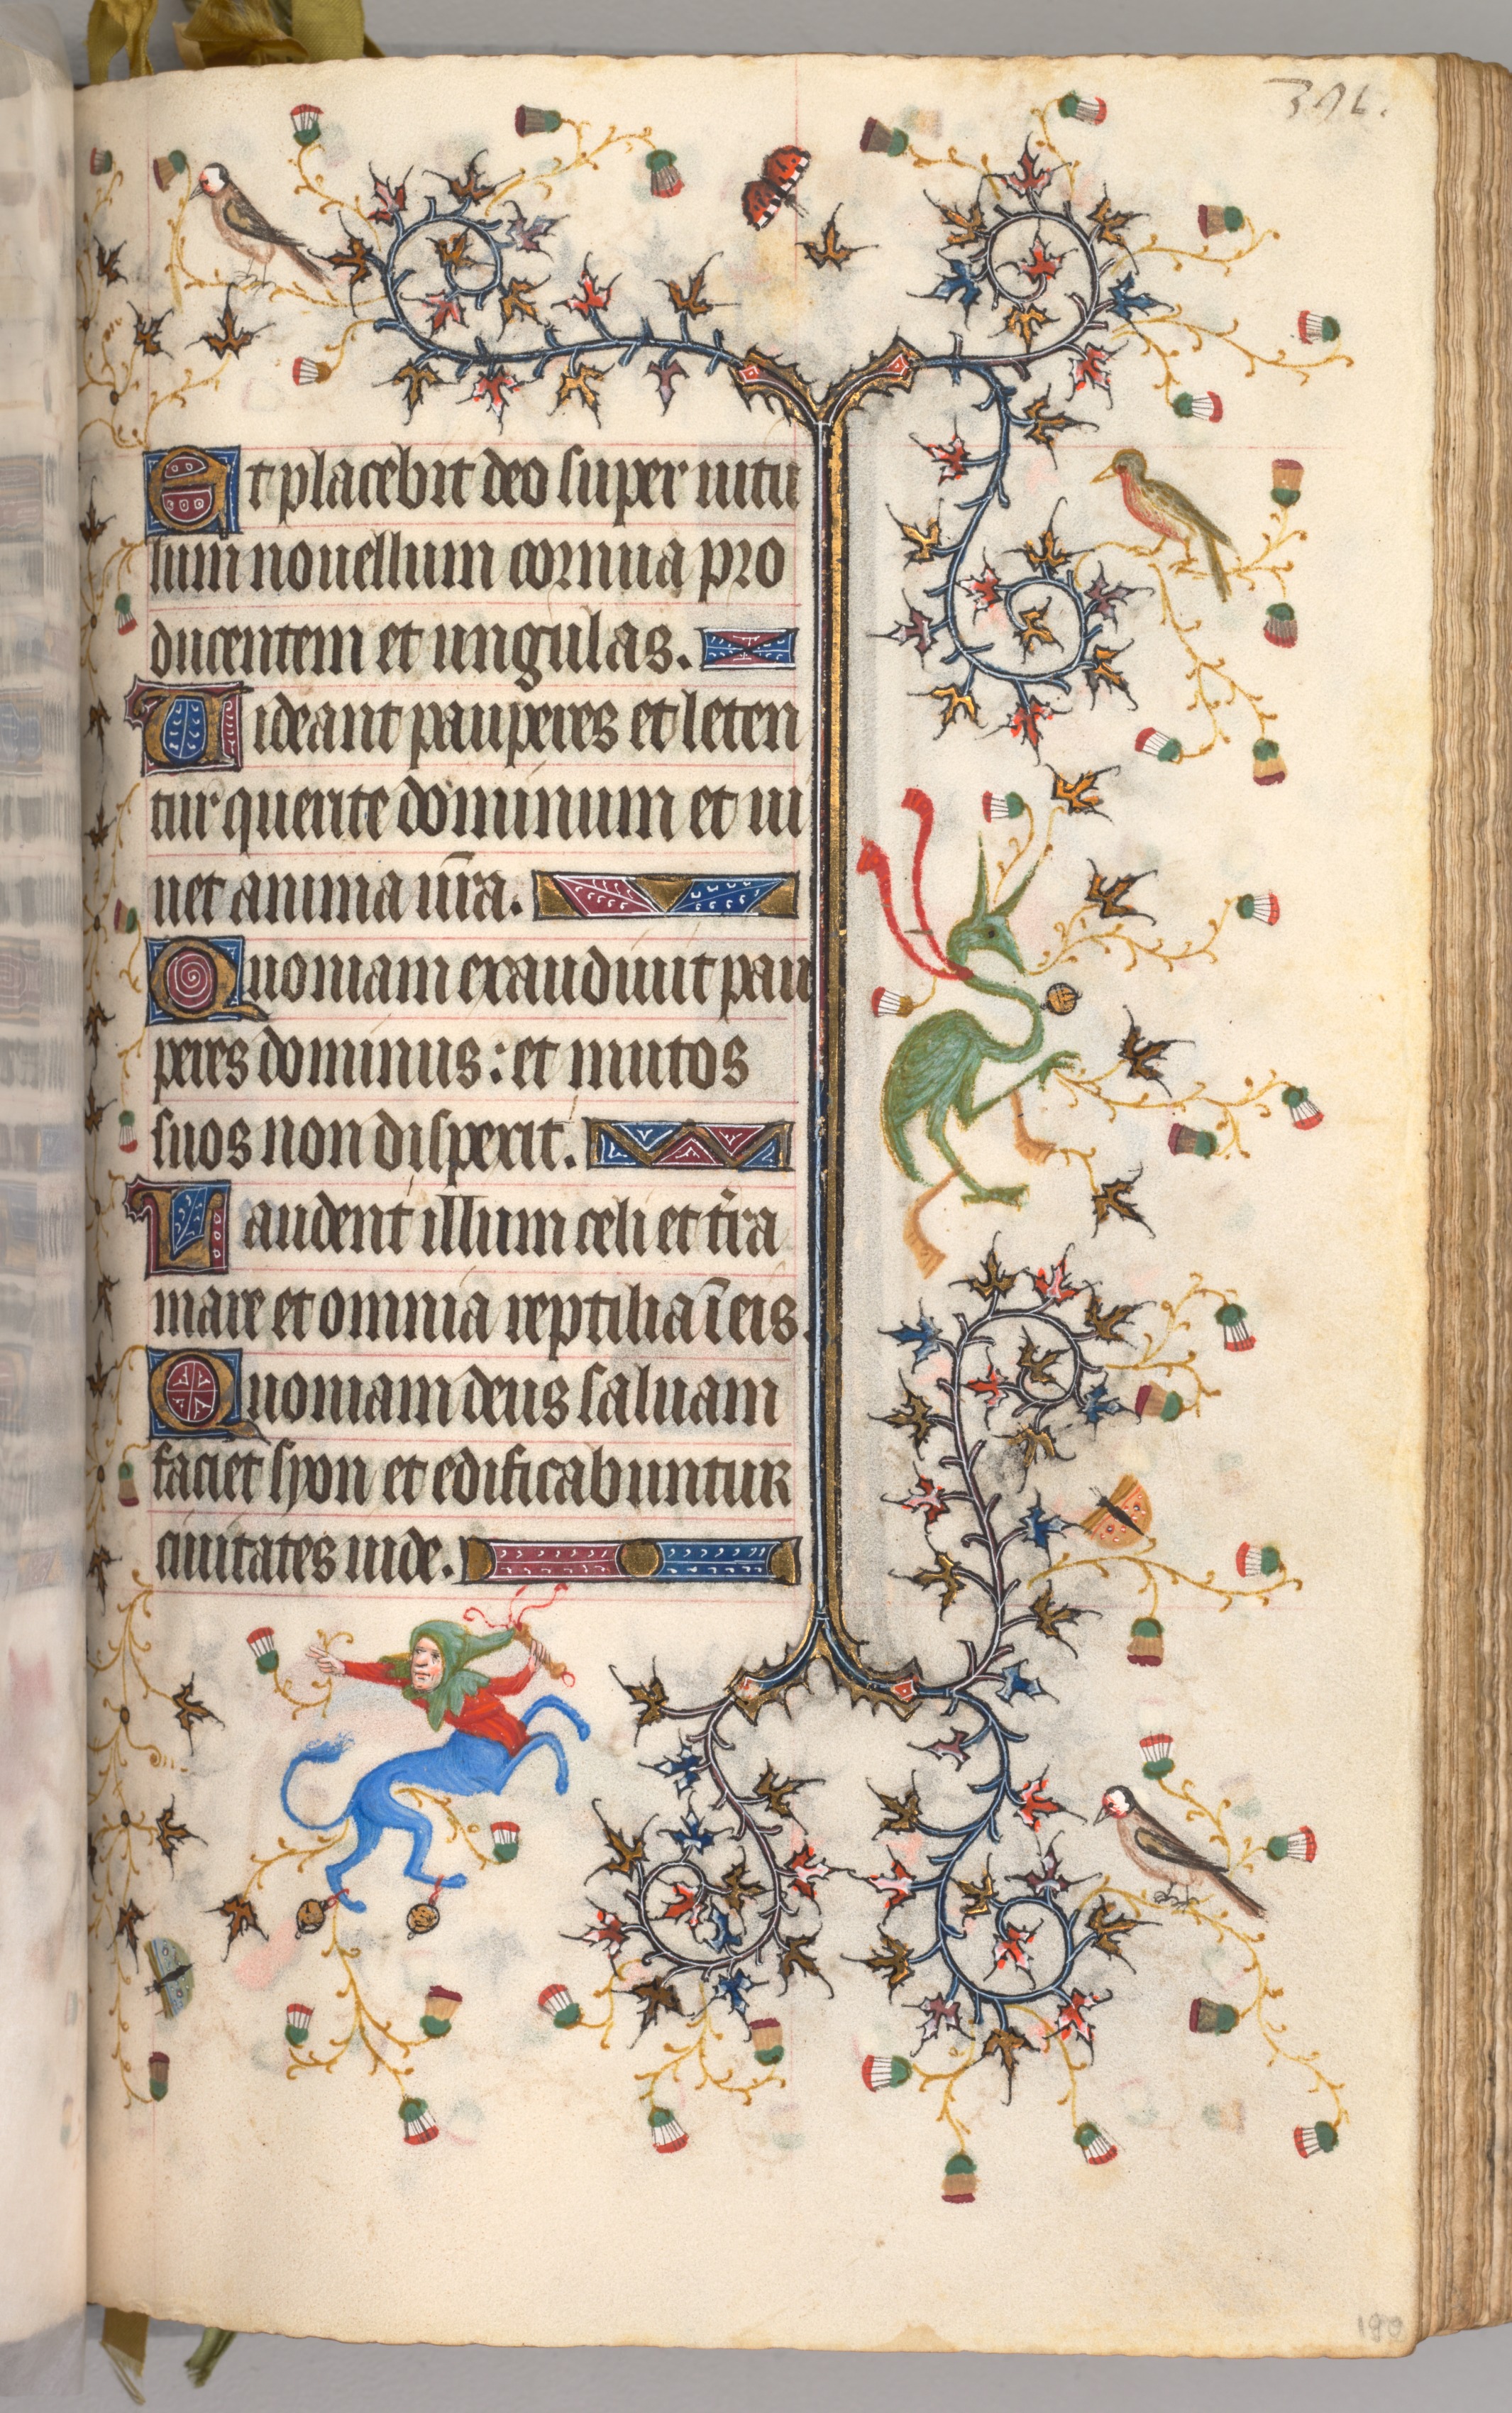 Et placebit deo super uitu
lum nouellum cornua pro
ducentem et ungulas.
Uideant pauperes et leten
tur querite dominum et ui
uet anima ur̄a.
Quoniam exaudiuit pau
peres dominus: et uinctos
suos non dispexit.
Laudent illum celi et t̄ra
mare et omnia reptilia ī eis.
Quoniam deus saluam
faciet syon et edificabuntur
ciuitates iude.
190